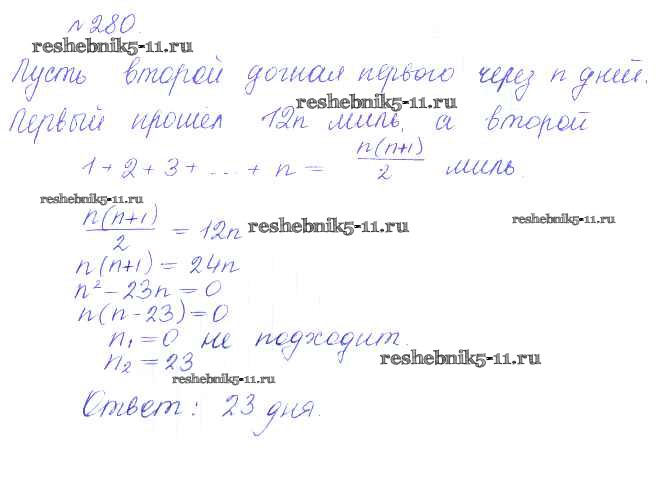 №280.
reshebnik5-11.ru
Пусть второй догнал первого через n дней.
reshebnik5-11.ru
Первый прошёл 12n миль, а второй
1+2+3+...+n = n(n+1)/2 миль.
reshebnik5-11.ru
n(n+1)/2 = 12n reshebnik5-11.ru reshebnik5-11.ru
n(n+1) = 24n
n²-23n=0
n(n-23)=0
n₁=0 не подходит.
n₂=23 reshebnik5-11.ru
reshebnik5-11.ru
Ответ: 23 дня.